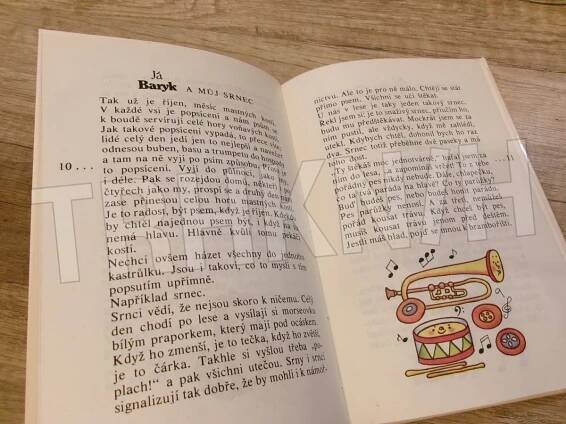 Já
Baryk A MŮJ SRNEC
Tak už je říjen, měsíc mastných kostí.
V každé vsi je popsícení a nám psům se
k boudě servírují celé hory voňavých kostí.
Jak takové popsícení vypadá, to přece víš:
lidé celý den jedí jen to nejlepší a navečer
odnesou buben, basu a trumpetu do hospody
a tam na ně vyjí po psím způsobu. Proto
to popsícení. Vyjí do půlnoci, jako my,
i déle. Pak se rozejdou domů, někteří po
čtyřech jako my, prospí se a druhý den nám
zase přinesou celou horu mastných kostí.
Je to radost, být psem, když je říjen. Kdybych
chtěl najednou psem být, i když na to
nemá hlavu. Hlavně kvůli tomu pekáči
kostí.
Nechci ovšem házet všechny do jednoho
kastrůlku. Jsou i takoví, co to myslí s tím
popsutím upřímně.
Například srnec.
Srnci vědí, že nejsou skoro k ničemu. Celý
den chodí po lese a vysílají si morseovku
bílým praporkem, který mají pod ocáskem.
Když ho zmenší, je to tečka, když ho zvětší,
je to čárka. Takhle si vyšlou třeba „po-
plach!“ a pak všichni utečou. Srny i srnci
signalizují tak dobře, že by mohli i k námoř-
10 . . .
nictvu. Ale to je pro ně málo. Chtějí se stát
přímo psem. Všichni se učí štěkat.
U nás v lese je taky jeden takový srnec.
Řekl jsem si: to je přičinlivý srnec, přiučím ho,
budu mu předštěkávat. Mockrát jsem se za
ním pustil, ale vždycky, když mě zahlédl,
utekl. Kdybych chtěl, dohonil bych ho raz
dva. Srnec totiž přeběhne dvě paseky a má
toho dost.
„Ty štěkáš moc jednotvárně,“ hafal jsem za
ním do lesa, „a zapomínáš vrčet! To z tebe
pořádný pes nebude. Dále, chlapečku,
co ta tvá paráda na hlavě? Co ty parůžky?
Buď budeš pes, nebo budeš honit parádu.
Pes parůžky nenosí. A za třetí, neumíš
pořádně kousat trávu. Když chceš být pes,
musíš kousat trávu jenom před deštěm.
Jestli máš hlad, pojď se mnou k bramboříšti.
. . . 11
TRHKNIH